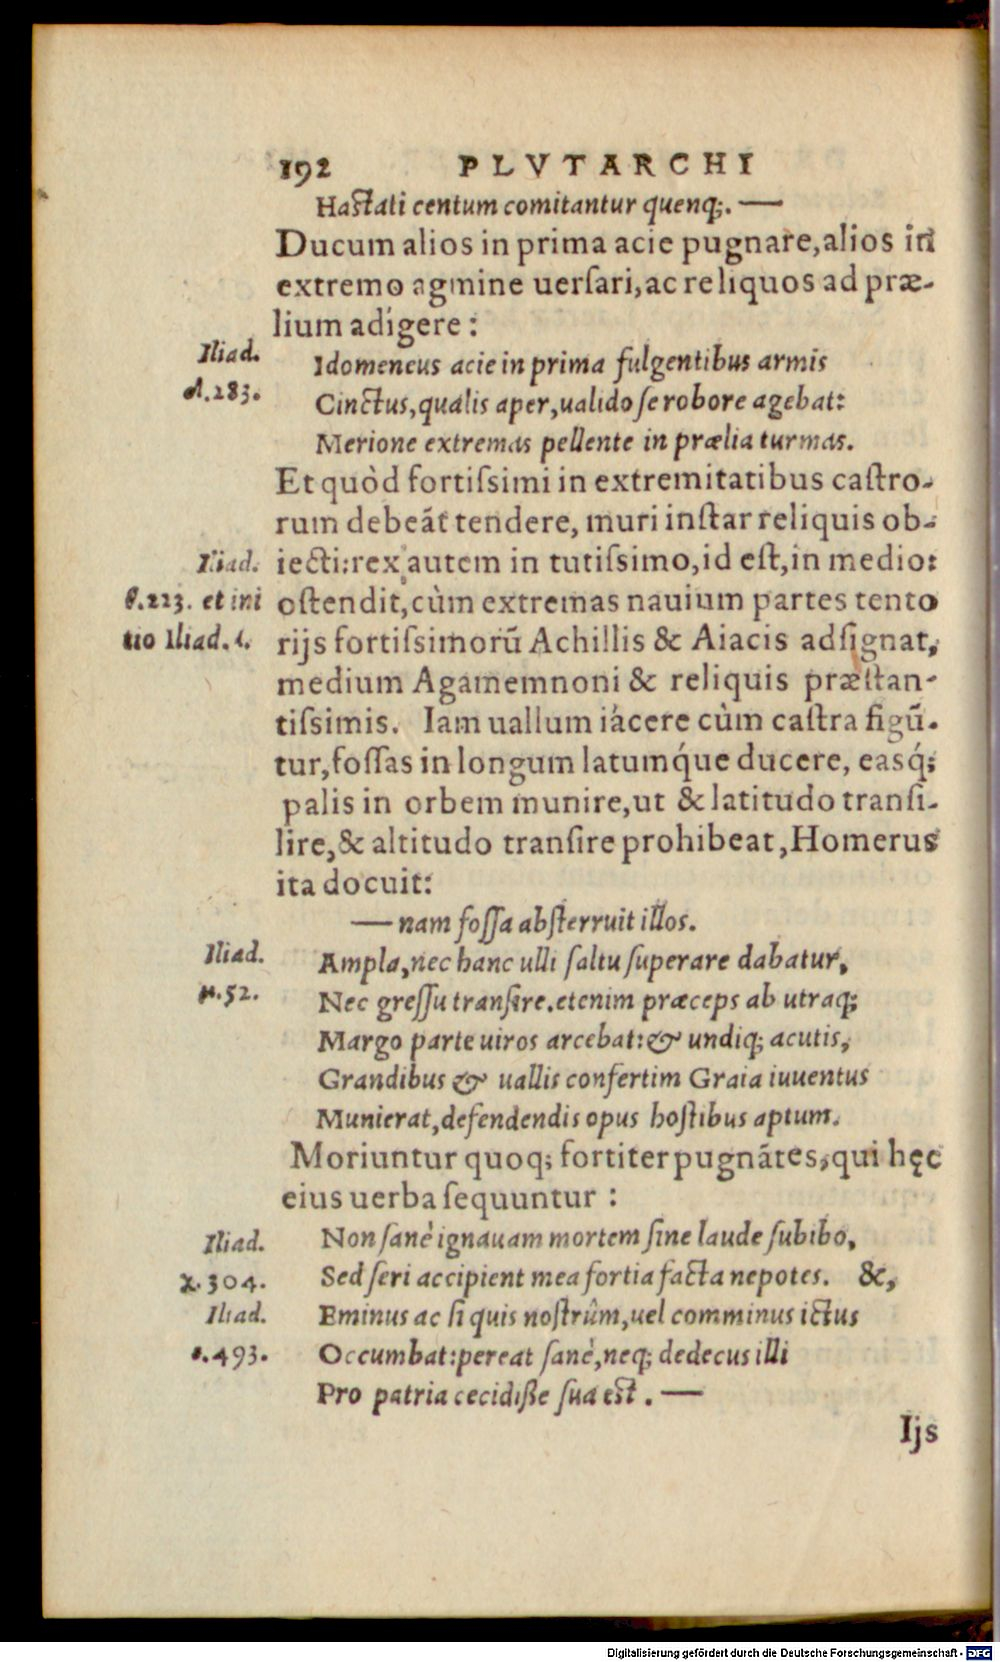 192 PLVTARCHI
Hastati centum comitantur quenq;. —
Ducum alios in prima acie pugnare, alios in
extremo agmine uersari, ac reliquos ad præ-
lium adigere :
Iliad.
Idomeneus acie in prima fulgentibus armis
.283.
Cinctus, qualis aper, ualido se robore agebat:
Merione extremas pellente in prælia turmas.
Et quòd fortissimi in extremitatibus castro-
rum debeāt tendere, muri instar reliquis ob-
Iliad.
iecti: rex autem in tutissimo, id est, in medio:
.223. et ini
ostendit, cùm extremas nauium partes tento
tio Iliad. ι.
rijs fortissimorū Achillis & Aiacis adsignat,
medium Agamemnoni & reliquis præstan-
tissimis. Iam uallum iácere cùm castra figū-
tur, fossas in longum latumq́ue ducere, easq́;
palis in orbem munire, ut & latitudo transi-
lire, & altitudo transire prohibeat, Homerus
ita docuit:
— nam fossa absterruit illos.
Iliad.
Ampla, nec hanc ulli saltu superare dabatur,
μ.52.
Nec gressu transire. etenim præceps ab utraq;
Margo parte uiros arcebat: & undiq; acutis,
Grandibus & uallis confertim Graia iuuentus
Munierat, defendendis opus hostibus aptum.
Moriuntur quoq; fortiter pugnātes, qui hęc
eius uerba sequuntur :
Iliad.
Non sanè ignauam mortem sine laude subibo,
χ.304.
Sed seri accipient mea fortia facta nepotes. &c,
Iliad.
Eminus ac si quis nostrûm, uel comminus ictus
ο.493.
Occumbat: pereat sanè, neq; dedecus illi
Pro patria cecidisse sua est . —
Ijs
Digitalisierung gefördert durch die Deutsche Forschungsgemeinschaft - DFG